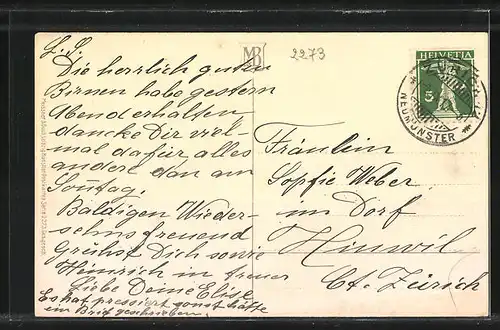 L. S.
Die herrlich guten
Birnen habe gestern
Abend erhalten
dancke Dir viel-
mal dafür, alles
andere dan am
Sontag.
Baldigen Wieder-
sehns freuend
Grühst Dich sowie
Heinrich in treuer
Liebe Deine Elise
Es hat pressiert sonst hätte
ein Brief geschrieben.
MB
2273
HELVETIA
5
ZÜRICH
NEUMÜNSTER
Fräulein
Sopfie Weber
im Dorf
Hinwil
Ct. Zürich